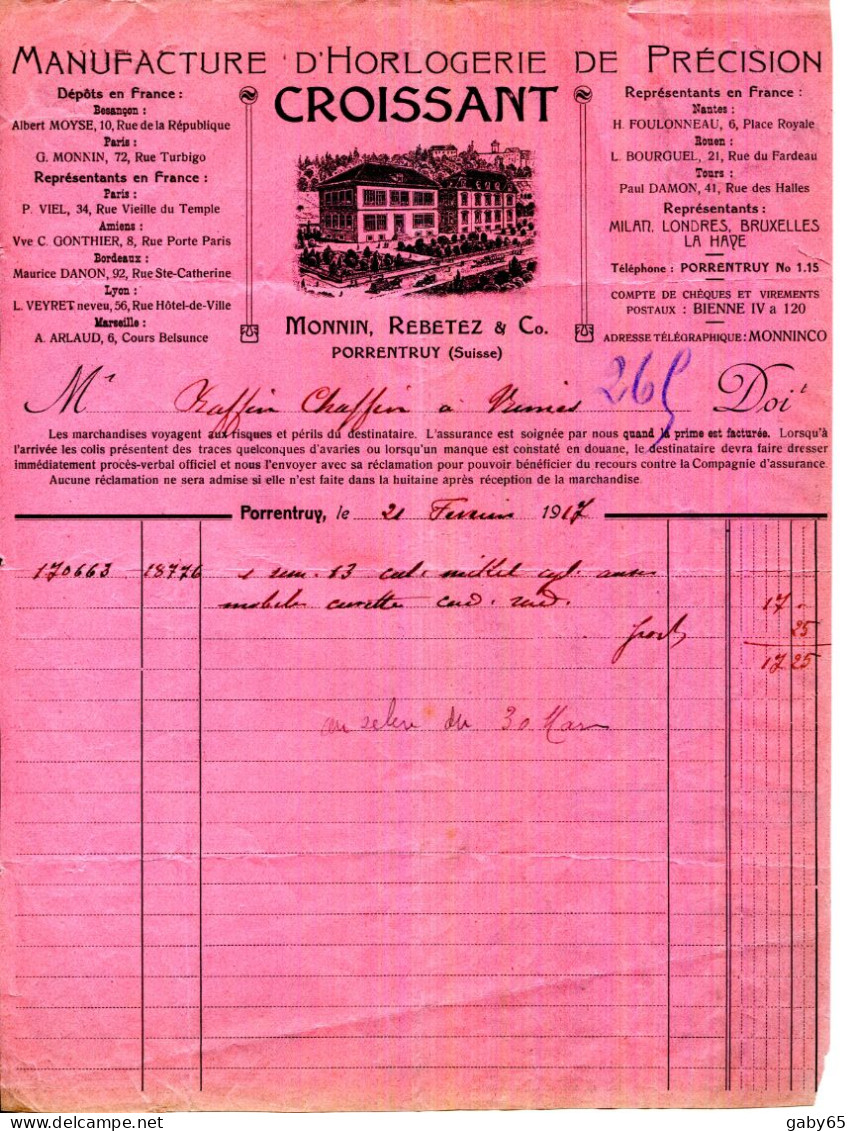 MANUFACTURE D'HORLOGERIE DE PRÉCISION
CROISSANT
Dépôts en France :
Besançon :
Albert MOYSE, 10, Rue de la République
Paris :
G. MONNIN, 72, Rue Turbigo
Représentants en France :
Paris :
P. VIEL, 34, Rue Vieille du Temple
Amiens :
Vve C. GONTHIER, 8, Rue Porte Paris
Bordeaux :
Maurice DANON, 92, Rue Ste-Catherine
Lyon :
L. VEYRET neveu, 56, Rue Hôtel-de-Ville
Marseille :
A. ARLAUD, 6, Cours Belsunce
MONNIN, REBETEZ & Co.
PORRENTRUY (Suisse)
Représentants en France :
Nantes :
H. FOULONNEAU, 6, Place Royale
Rouen :
L. BOURGUEL, 21, Rue du Fardeau
Tours :
Paul DAMON, 41, Rue des Halles
Représentants :
MILAN, LONDRES, BRUXELLES
LA HAYE
Téléphone : PORRENTRUY No 1.15
COMPTE DE CHÈQUES ET VIREMENTS
POSTAUX : BIENNE IV a 120
ADRESSE TÉLÉGRAPHIQUE : MONNINCO
265
Mr Chaffin à Doit
Les marchandises voyagent aux risques et périls du destinataire. L'assurance est soignée par nous quand la prime est facturée. Lorsqu'à
l'arrivée les colis présentent des traces quelconques d'avaries ou lorsqu'un manque est constaté en douane, le destinataire devra faire dresser
immédiatement procès-verbal officiel et nous l'envoyer avec sa réclamation pour pouvoir bénéficier du recours contre la Compagnie d'assurance.
Aucune réclamation ne sera admise si elle n'est faite dans la huitaine après réception de la marchandise.
Porrentruy, le 21 Fevrier 1917
170663 18776 13 cal. nikel cyl. anses
mobiles cuvette 17 -
port 25
17 25
du 30 Mars
gaby65